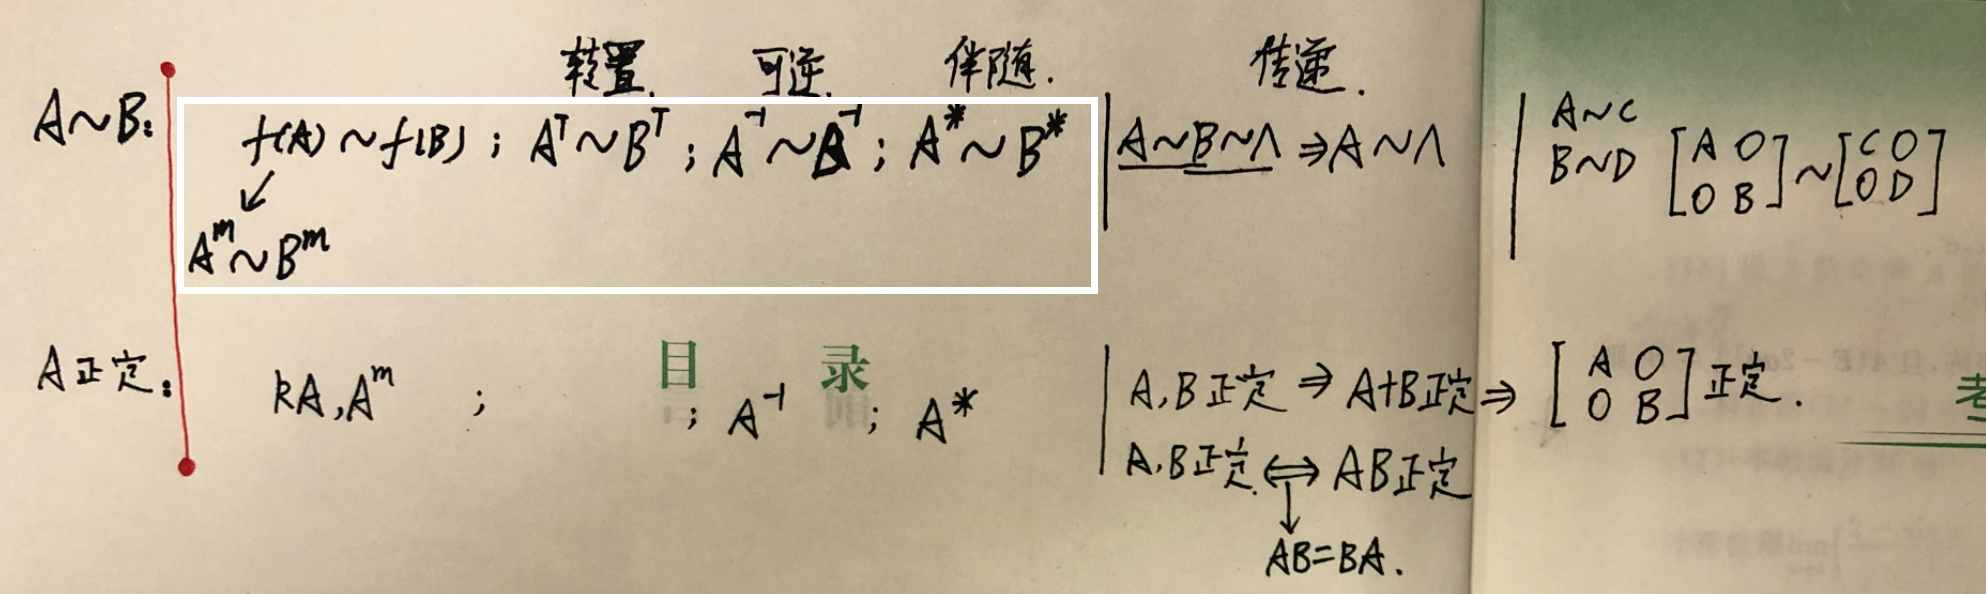 转置. 可逆. 伴随. 传递.
A~B: f(A)~f(B); Aᵀ~Bᵀ; A⁻¹~B⁻¹; A*~B* | A~B~Λ ⇒ A~Λ | A~C
B~D [A O] ~ [C O]
[O B] [O D]
↙
Aᵐ~Bᵐ
目 录
A正定: kA, Aᵐ ; ; A⁻¹ ; A* | A,B正定 ⇒ A+B正定 ⇒ [A O] 正定.
[O B]
考
A,B正定. ⇔ AB正定
↓
AB=BA.